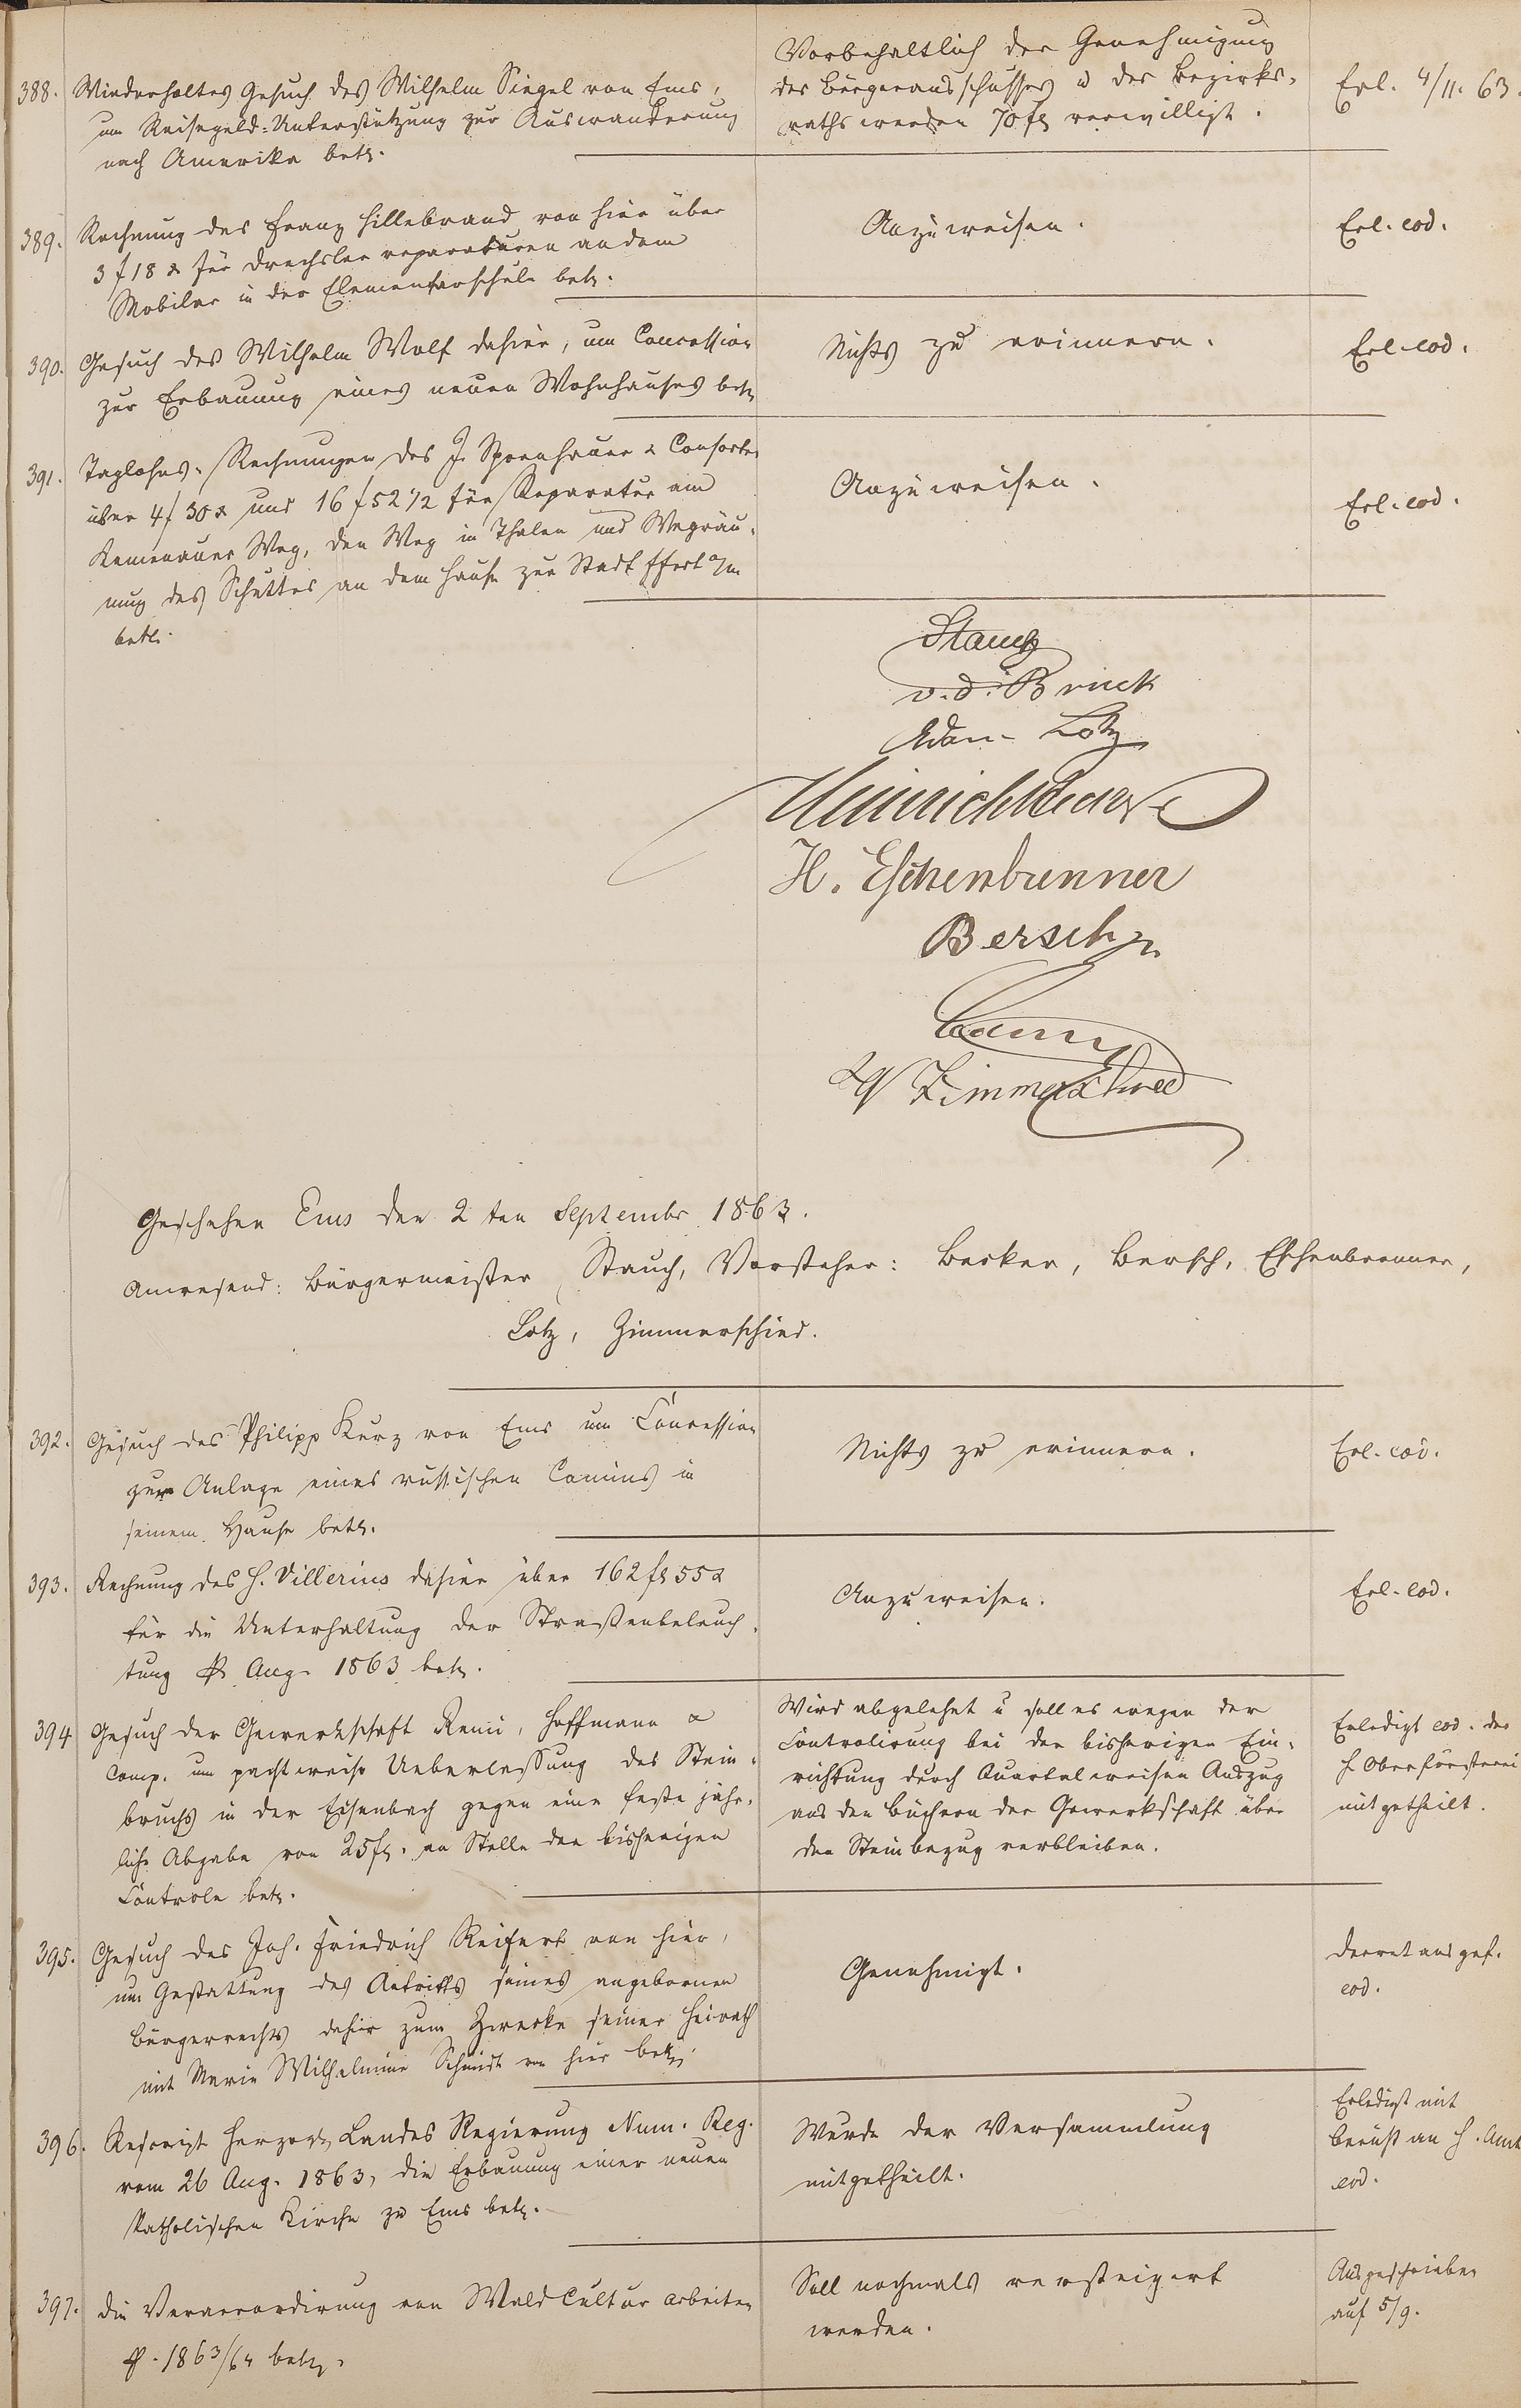 388. Wiederholtes Gesuch des Wilhelm Siegel von Ems,
um Reisegeld-Unterstützung zur Auswanderung
nach Amerika betr.
Vorbehaltlich der Genehmigung
des Bürgerausschusses u des Bezirks-
raths werden 70 fl verwilligt.
Erl. 4/11. 63.
389. Rechnung des Franz Hillebrand von hier über
3 f 18 x für Drechsler reparaturen an dem
Mobilar in der Elementarschule betr.
Anzuweisen.
Erl. eod.
390. Gesuch des Wilhelm Wolf dahier, um Concession
zur Erbauung eines neuen Wohnhauses betr
Nichts zu erinnern.
Erl. eod.
391. Taglohns-Rechnungen des J. Sporenhauer & Consorten
über 4 f 30 x und 16 f 52 1/2 für Reparatur am
Kemenauer Weg, den Weg in Thalen und Wegräu-
mung des Schuttes an dem Hause zur Stadt Ffort a/m
betr.
Anzuweisen.
Erl. eod.
Stauch
v. d. Bruck
Adam Lotz
Heinrich Becker
H. Eschenbrenner
Bersch
W Zimmerschied
Geschehen Ems den 2 ten Septembr 1863.
Anwesend: Bürgermeister Stauch, Vorsteher: Becker, Bersch, Eschenbrenner,
Lotz, Zimmerschied.
392. Gesuch des Philipp Kurz von Ems um Concession
zur Anlage eines russischen Camins in
seinem Hause betr.
Nichts zu erinnern.
Erl. eod.
393. Rechnung des H. Villerius dahier über 162 fl 55 x
für die Unterhaltung der Straßenbeleuch-
tung pr Aug. 1863 betr.
Anzuweisen.
Erl. eod.
394 Gesuch der Gewerkschaft Remi, Hoffmann &
Comp. um pachtweise Ueberlassung des Stein-
bruchs in der Eisenbach gegen eine feste jähr-
liche Abgabe von 25 fl. an Stelle der bisherigen
Controle betr.
Wird abgelehnt u soll es wegen der
Controlirung bei der bisherigen Ein-
richtung durch Quartalweisen Auszug
aus den Büchern der Gewerkschaft über
den Steinbezug verbleiben.
Erledigt eod. der
H Oberförsterei
mitgetheilt.
395. Gesuch des Joh. Friedrich Reifert von hier,
um Gestattung des Antritts seines angebornen
Bürgerrechts dahier zum Zwecke seiner Heirath
mit Marie Wilhelmine Schmidt von hier betr.
Genehmigt.
Decret ausgef.
eod.
396. Rescript Herzogl. Landes Regierung Num. Reg.
vom 26 Aug. 1863, die Erbauung einer neuen
Katholischen Kirche zu Ems betr.
Wurde der Versammlung
mitgetheilt.
Erledigt mit
Bericht an H. Amt
eod.
397. Die Veraccordirung von Wald Cultur arbeiten
pr. 1863/64 betr.
Soll nochmals versteigert
werden.
Ausgeschrieben
auf 5/9.